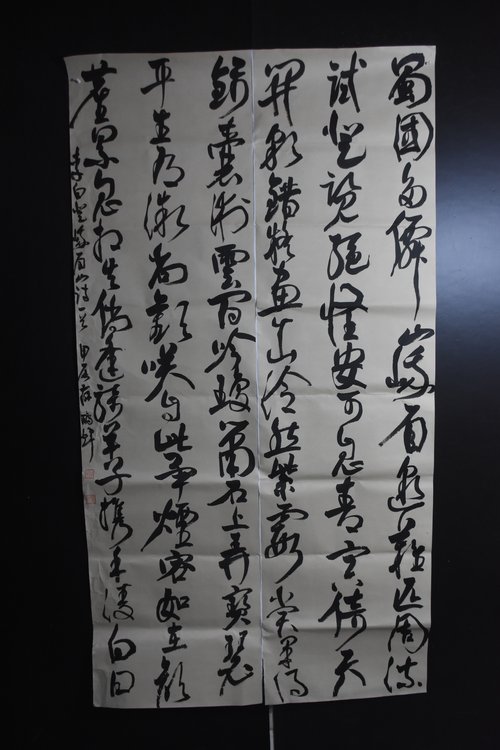 蜀國多僊山峨眉邈難匹周流
試登覽絕怪安可悉青冥倚天
開彩錯疑畫出泠然紫霞賞果得
錦囊術雲間吟瓊簫石上弄寶瑟
平生有微尚歡笑自此畢煙容如在顏
塵累忽相失倘逢騎羊子攜手凌白日
李白登峨眉山詩一首